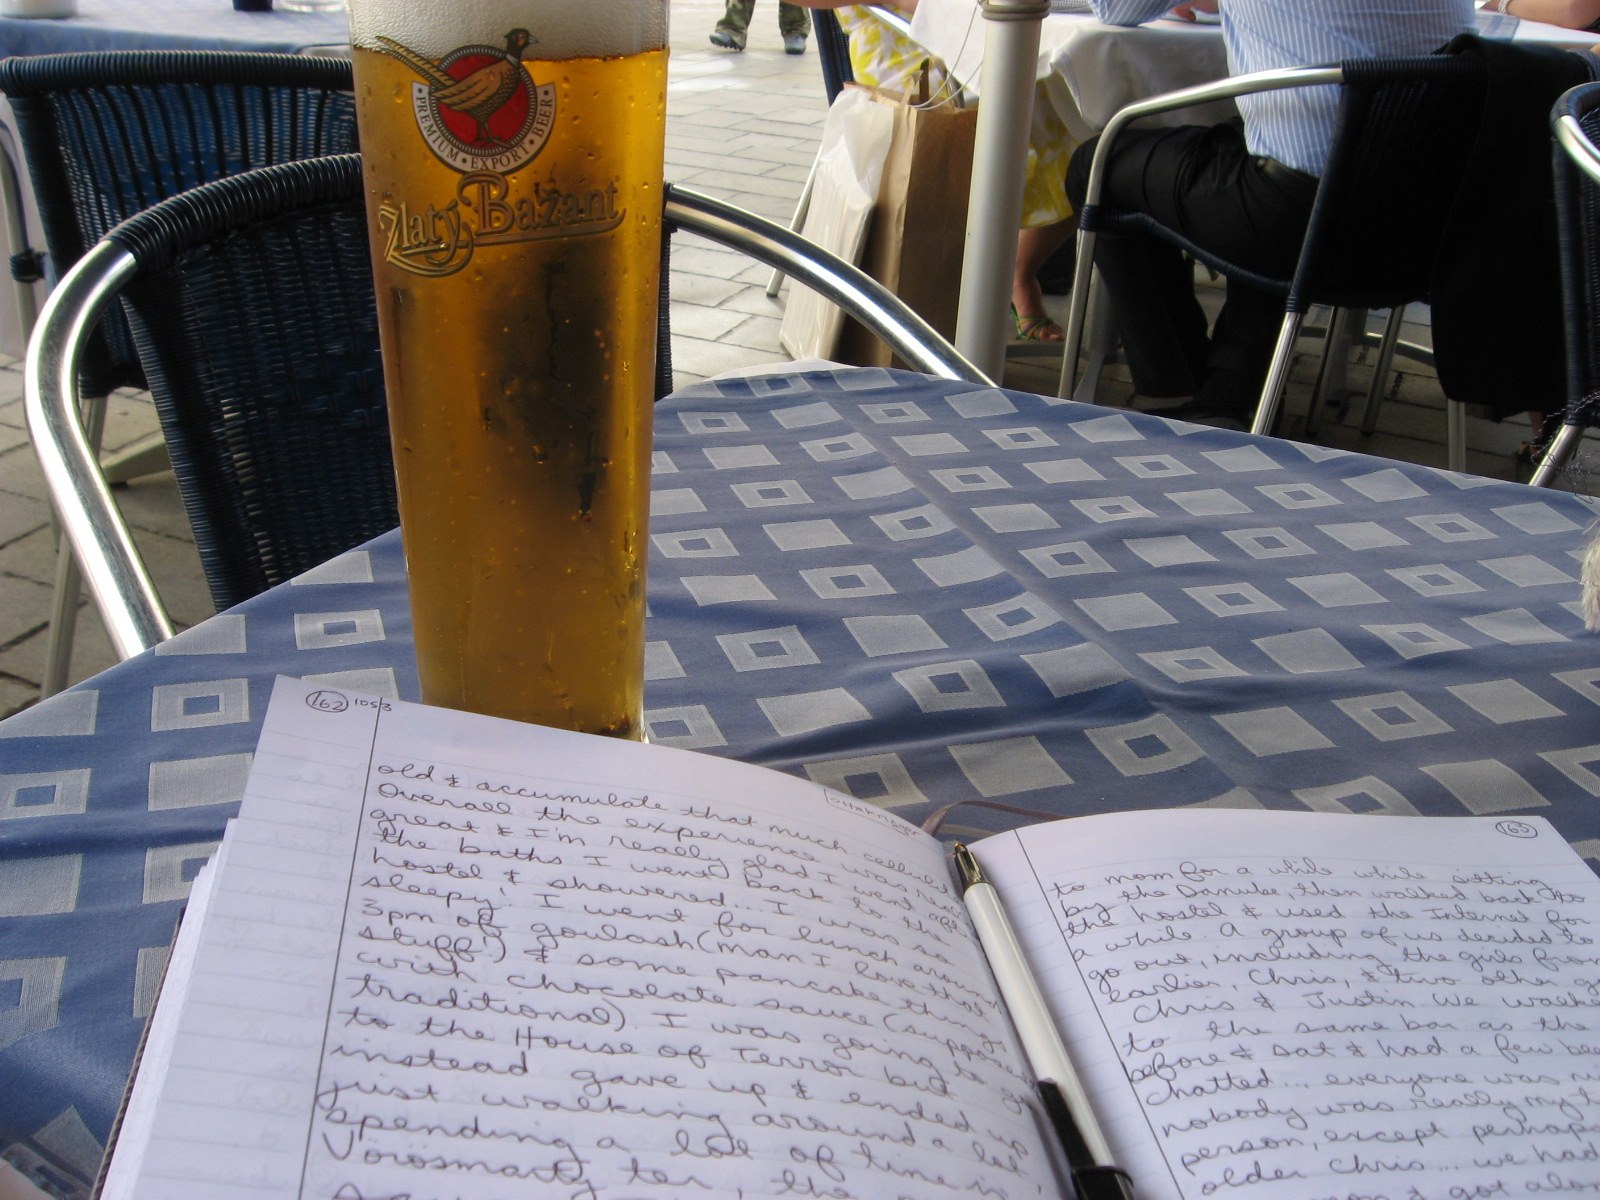 PREMIUM • EXPORT • BEER
Zlatý Bažant
162 1053
old & accumulate that much cellulite
Overall the experience was really
great & I'm really glad I went. After
the baths I went back to the
hostel & showered... I was so
sleepy! I went for lunch around
3pm of goulash (man I love that
stuff!) & some pancake things
with chocolate sauce (supposedly
traditional). I was going to go
to the House of Terror but
instead gave up & ended up
just walking around a lot,
spending a lot of time in
Vörösmarty ter, the
163
to mom for a while while sitting
by the Danube, then walked back to
the hostel & used the Internet for
a while. A group of us decided to
go out, including the girls from
earlier, Chris, & two other
Chris & Justin. We walked
to the same bar as the
before & sat & had a few
chatted... everyone was
nobody was really my
person, except perhaps
older Chris... we had
got